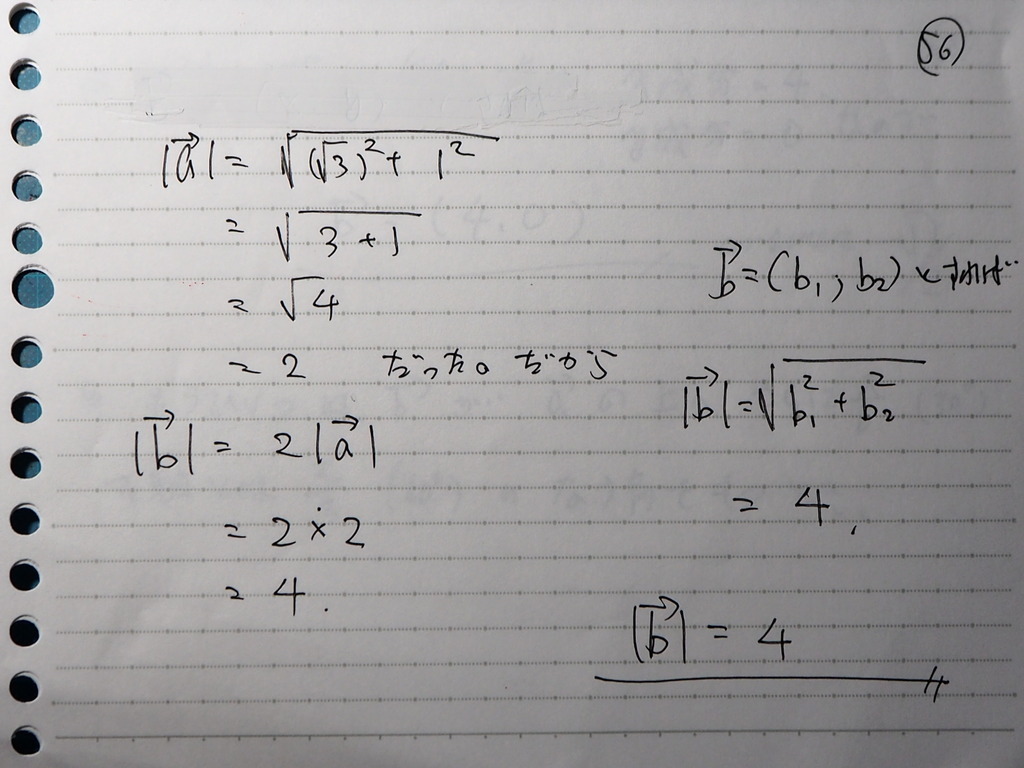 56
|a⃗| = √((√3)² + 1²)
= √(3+1)
= √4
= 2 だった。だから
|b⃗| = 2|a⃗|
= 2×2
= 4.
b⃗ = (b₁, b₂) とすれば
|b⃗| = √(b₁² + b₂²)
= 4,
|b⃗| = 4